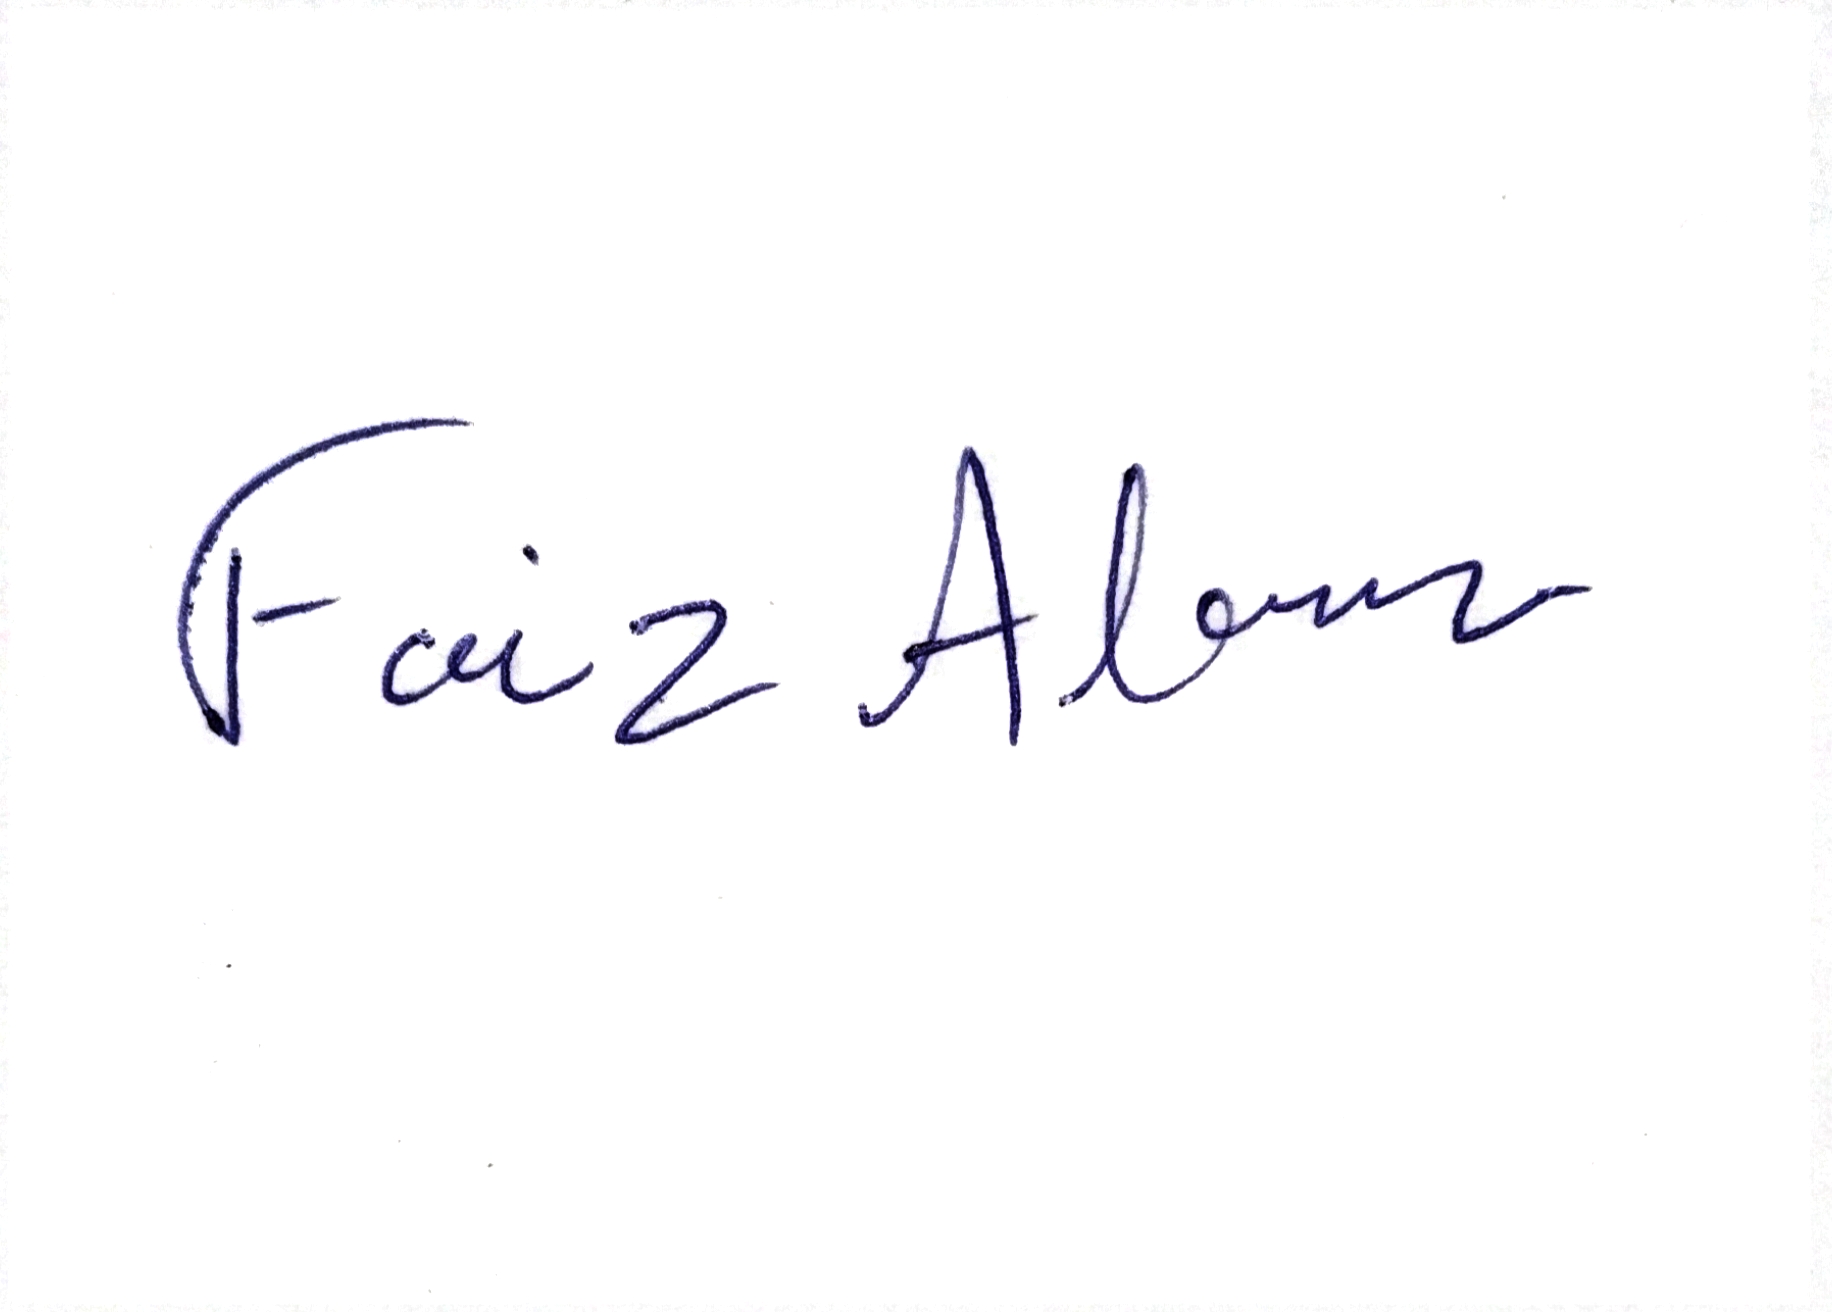 Faiz Alam